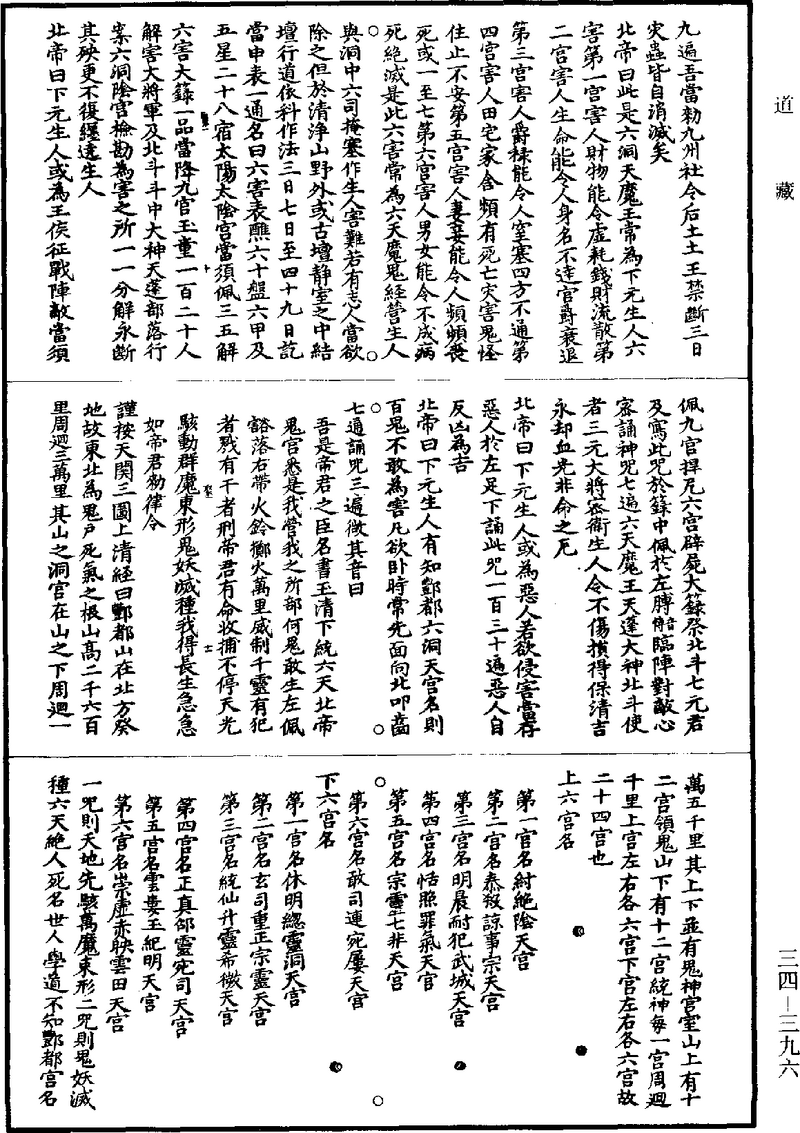 道藏
九遍吾當勑九州社令后土土王禁斷三日
灾蟲皆自消滅矣
北帝曰此是六洞天魔王常為下元生人六
害第一宮害人財物能令虛耗錢財流散第
二宮害人生命能令人身名不達官爵衰退
第三宮害人爵祿能令人窒塞四方不通第
四宮害人田宅家舍頻有死亡灾害鬼怪
住止不安第五宮害人妻妾能令人頻頻喪
死或一至七第六宮害人男女能令不成病
死絕滅是此六害常為六天魔鬼經營生人
與洞中六司掩塞作生人害難若有志人當欲
除之但於清淨山野外或古壇靜室之中結
壇行道依科作法三日七日至四十九日訖
當申表一通名曰六害表醮六十盤六甲及
五星二十八宿太陽太陰宮當須佩三五解
六害大籙一品當降九宮玉童一百二十人
解害大將軍及北斗斗中大神天蓬部落行
案六洞陰宮檢勘為害之所一一分解永斷
其殃更不復纏遶生人
北帝曰下元生人或為王侯征戰陣敵當須
佩九宮捍厄六宮辟屍大籙祭北斗七元君
及寫此咒於籙中佩於左膊臨陣對敵心
密誦神咒七遍六天魔王天蓬大神北斗使
者三元大將密衛生人令不傷損得保清吉
永却血光非命之厄
北帝曰下元生人或為惡人若欲侵害當存
惡人於左足下誦此咒一百三十遍惡人自
反凶為吉
北帝曰下元生人有知酆都六洞天宮名則
百鬼不敢為害凡欲卧時常先面向北叩齒
七通誦咒三遍微其音曰
吾是帝君之臣名書玉清下統六天北帝
鬼宮悉是我營我之所部何鬼敢生左佩
豁落右帶火鈴擲火萬里威制千靈有犯
者戮有干者刑帝君有命收捕不停天光
駭動群魔束形鬼妖滅種我得長生急急
如帝君勑律令
謹按天關三圖上清經曰酆都山在北方癸
地故東北為鬼戶死氣之根山高二千六百
里周迴三萬里其山之洞宮在山之下周迴一
萬五千里其上下並有鬼神宮室山上有十
二宮領鬼山下有十二宮統神每一宮周迴
千里上宮左右各六宮下宮左右各六宮故
二十四宮也
上六宮名
第一宮名紂絕陰天宮
第二宮名泰殺諒事宗天宮
第三宮名明晨耐犯武城天宮
第四宮名恬照罪氣天宮
第五宮名宗靈七非天宮
第六宮名敢司連宛屢天宮
下六宮名
第一宮名休明總靈洞天宮
第二宮名玄司重正宗靈天宮
第三宮名統仙升靈希微天宮
第四宮名正真郃靈死司天宮
第五宮名雲婁玉紀明天宮
第六宮名崇虛赤映雲田天宮
一咒則天地先駭萬魔束形二咒則鬼妖滅
種六天絕人死名世人學道不知酆都宮名
三四－三九六